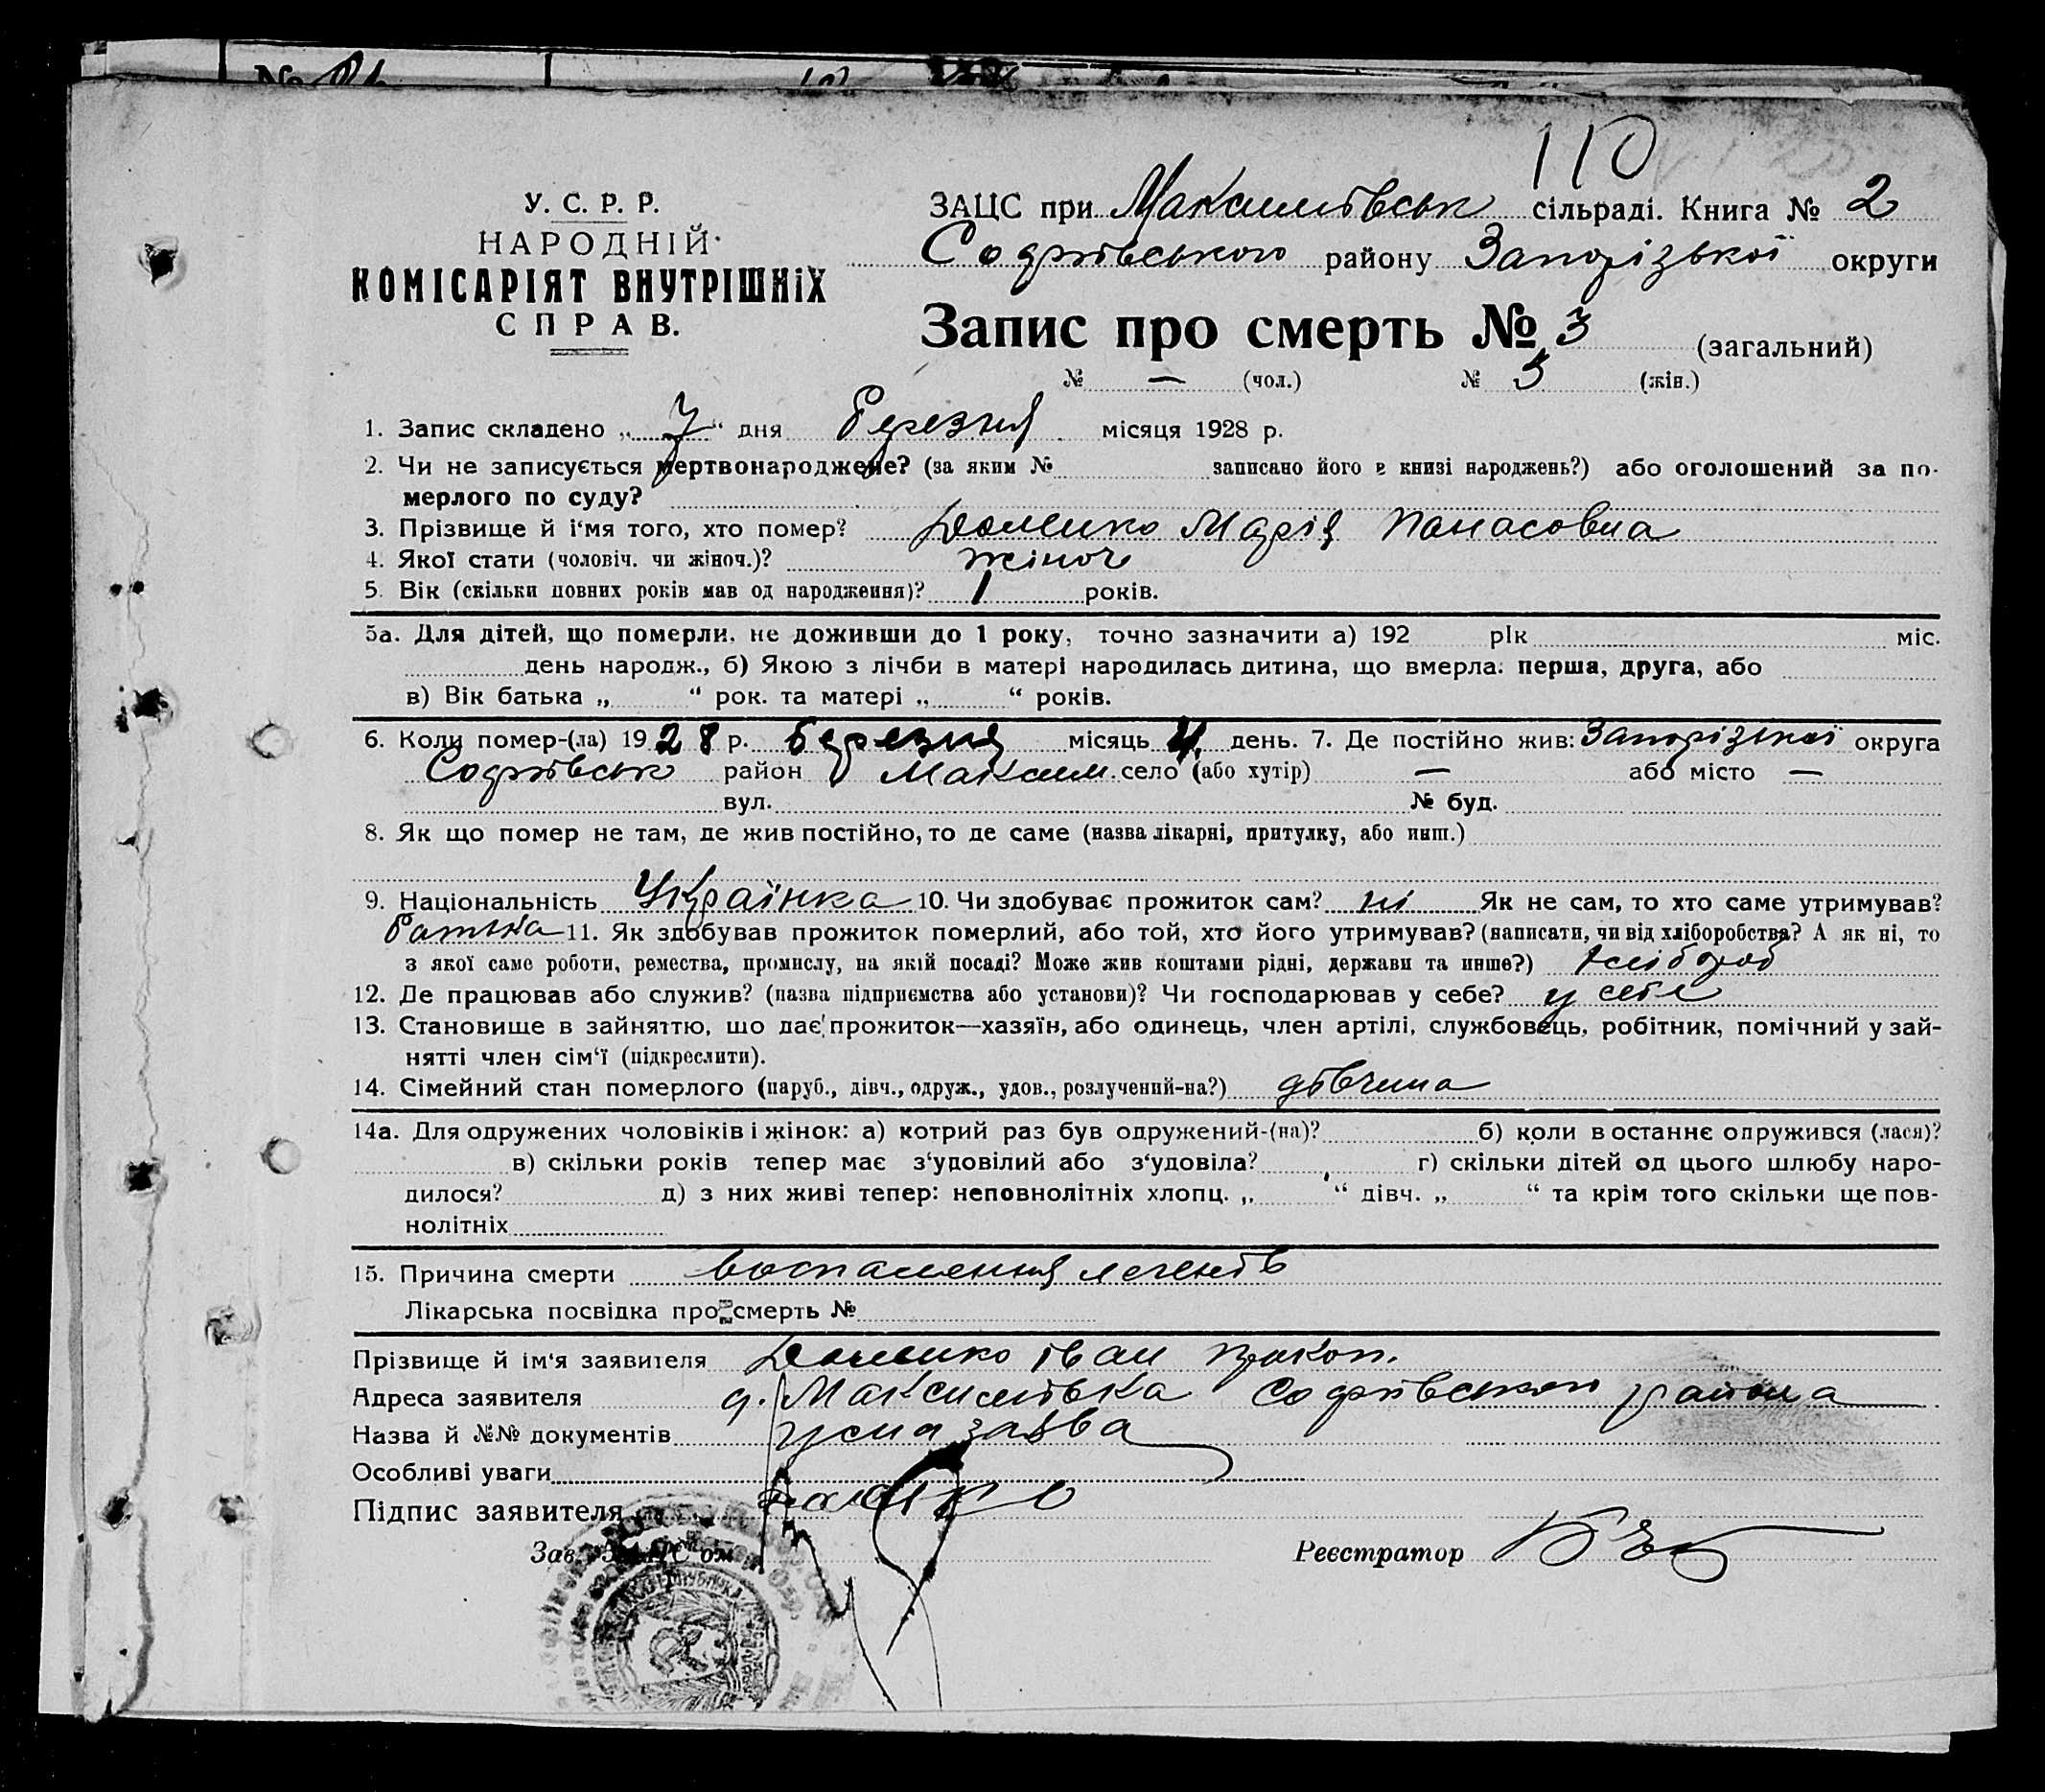 110
У. С. Р. Р.
НАРОДНІЙ
КОМІСАРІЯТ ВНУТРІШНіХ
СПРАВ.
ЗАЦС при Максимівськ сільраді. Книга № 2
Софіївського району Запорізької округи
Запис про смерть № 3 (загальний)
№ — (чол.) № 3 (жін.)
1. Запис складено „ 7 “ дня Березня місяця 1928 р.
2. Чи не записується мертвонароджене? (за яким № записано його в книзі народжень?) або оголошений за по-
мерлого по суду?
3. Прізвище й і‘мя того, хто помер? Марія Панасовна
4. Якої стати (чоловіч. чи жіноч.)? жіноч
5. Вік (скільки повних років мав од народження)? 1 років.
5а. Для дітей, що померли, не доживши до 1 року, точно зазначити а) 192 рік міс.
день народж., б) Якою з лічби в матері народилась дитина, що вмерла: перша, друга, або
в) Вік батька „ “ рок. та матері „ “ років.
6. Коли помер-(ла) 1928 р. березня місяць 4 день. 7. Де постійно жив: Запорізької округа
Софіївськ район Максим. село (або хутір) — або місто —
вул. № буд.
8. Як що помер не там, де жив постійно, то де саме (назва лікарні, притулку, або инш.)
9. Національність Українка 10. Чи здобуває прожиток сам? ні Як не сам, то хто саме утримував?
батька 11. Як здобував прожиток померлий, або той, хто його утримував? (написати, чи від хліборобства? А як ні, то
з якої саме роботи, ремества, промислу, на якій посаді? Може жив коштами рідні, держави та инше?) хлібороб
12. Де працював або служив? (назва підприємства або установи)? Чи господарював у себе? у себе
13. Становище в зайняттю, що дає прожиток—хазяїн, або одинець, член артілі, службовець, робітник, помічний у зай-
нятті член сім‘ї (підкреслити).
14. Сімейний стан померлого (паруб., дівч., одруж., удов., розлучений-на?) дівчина
14а. Для одружених чоловіків і жінок: а) котрий раз був одружений-(на)? б) коли в останнє опружився (лася)?
в) скільки років тепер має з‘удовілий або з‘удовіла? г) скільки дітей од цього шлюбу наро-
дилося? д) з них живі тепер: неповнолітніх хлопц. „ “ дівч. „ “ та крім того скільки ще пов-
нолітніх
15. Причина смерти воспаления легенів
Лікарська посвідка про смерть №
Прізвище й ім‘я заявителя Іван Прокоп.
Адреса заявителя д. Максимівка Софіївського района
Назва й №№ документів усна заява
Особливі уваги
Підпис заявителя
Зав. ЗАЦС‘ом Реєстратор